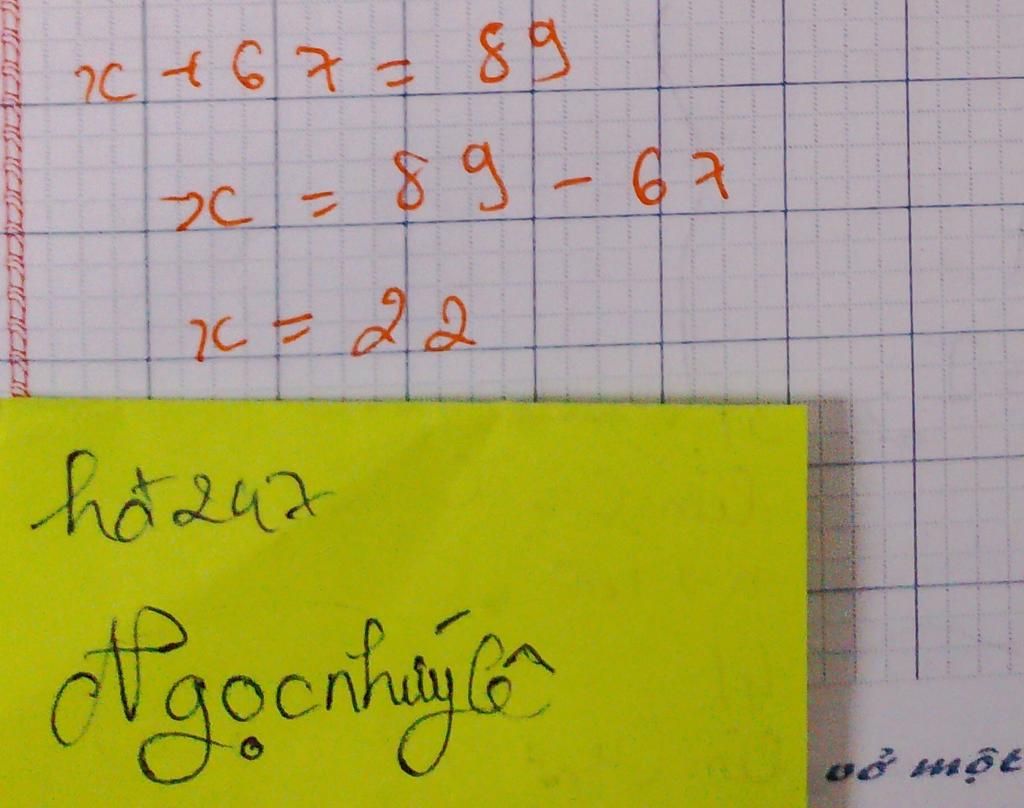 x + 67 = 89
x = 89 - 67
x = 22
hđ247
Ngọcnhúylê
vở một